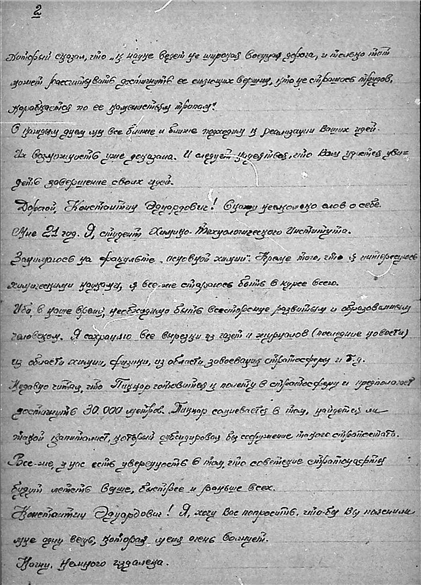 2
который сказал, что „к науке ведет не широкая возд дорога, и только тот
может рассчитывать достигнуть ее сияющих вершин, кто не страшась трудов,
карабкается по ее каменистым тропам".
С каждым днем мы все ближе и ближе подходим к реализации Ваших идей.
Их возможность уже доказана. И следует надеяться, что Вам удастся уви-
деть завершение своих идей.
Дорогой, Константин Эдуардович! Скажу несколько слов о себе.
Мне 21 год. Я, студент Химико-Технологического Института.
Занимаюсь на факультете химии". Кроме того, что я интересуюсь
химическими науками, я все-же стараюсь быть в курсе всего.
Ибо в наше время, необходимо быть всесторонне развитым и образованным
человеком. Я сохраняю все вырезки из газет и журналов (последние новости)
из области химии, физики, из области завоевания стратосферы и т.д.
Недавно читал, что Пикар готовится к полету в стратосферу и предполагает
достигнуть 30 000 метров. Пикар сомневается в том, найдется ли
такой капиталист, который субсидировал бы сооружение такого стратостата.
Все-же, у нас есть уверенность в том, что советские стратонавты
будут летать выше, быстрее и раньше всех.
Константин Эдуардович! Я, хочу Вас попросить, что-бы Вы пояснили
мне одну вещь, которая меня очень волнует.
Начну, немного издалека.